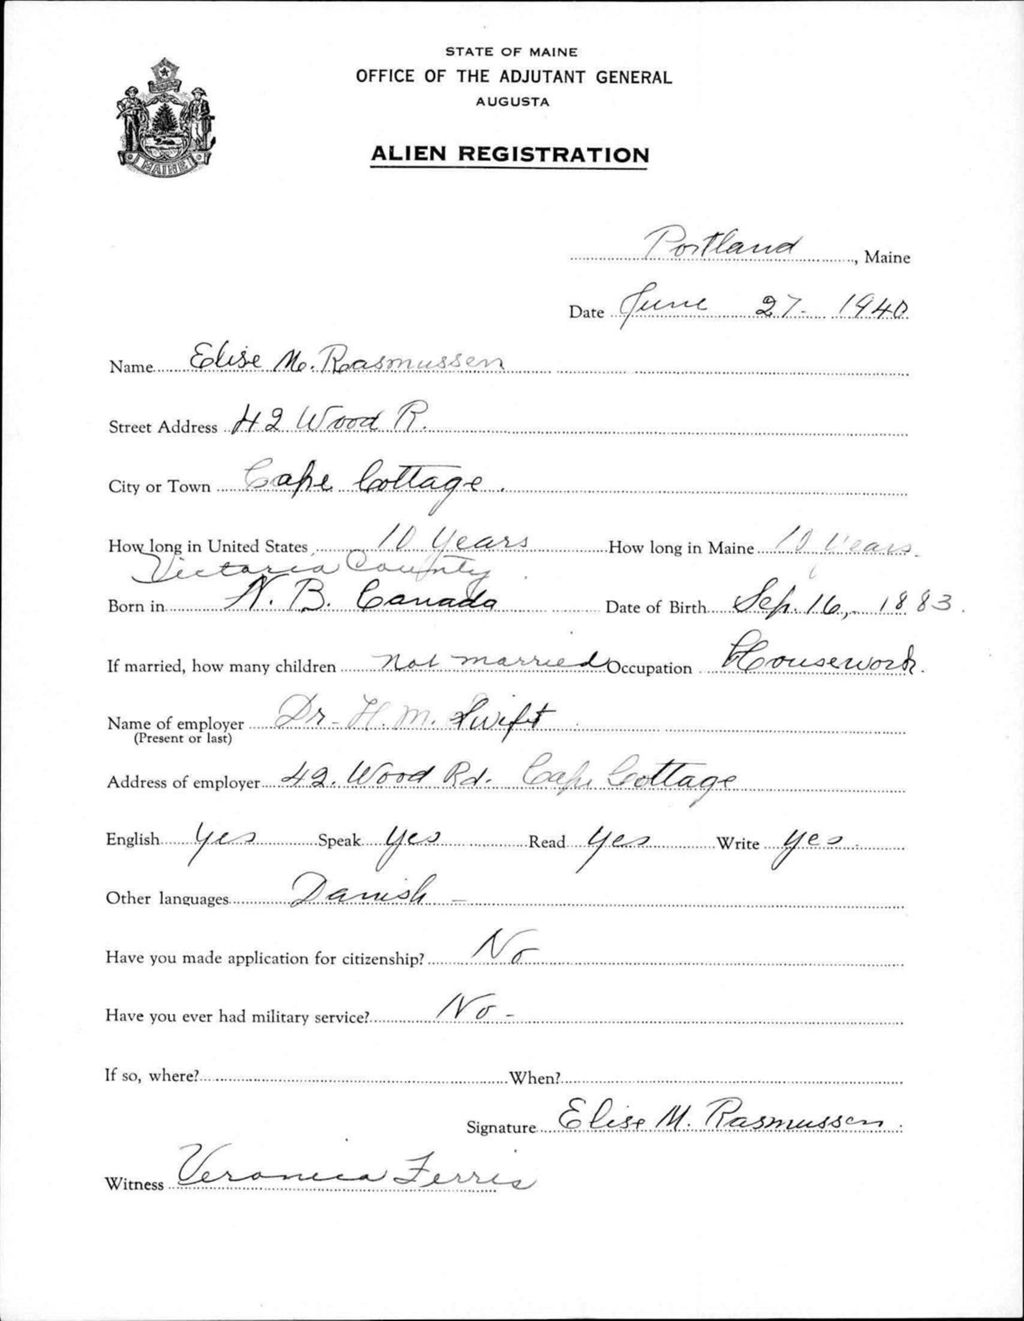 STATE OF MAINE
OFFICE OF THE ADJUTANT GENERAL
AUGUSTA
ALIEN REGISTRATION
MAINE
Portland, Maine
Date June 27- 1940
Name Elise M. Rasmussen
Street Address 42 Wood R.
City or Town Cape Cottage.
How long in United States 10 Years How long in Maine 10 Years.
Victoria County
Born in N. B. Canada Date of Birth Sep. 16, 1883.
If married, how many children not married Occupation Housework.
Name of employer Dr- H. M. Swift
(Present or last)
Address of employer 42. Wood Rd. Cape Cottage
English yes Speak yes Read yes Write yes.
Other languages Danish -
Have you made application for citizenship? No
Have you ever had military service? No -
If so, where? When?
Signature Elise M. Rasmussen.
Witness Veronica Ferris